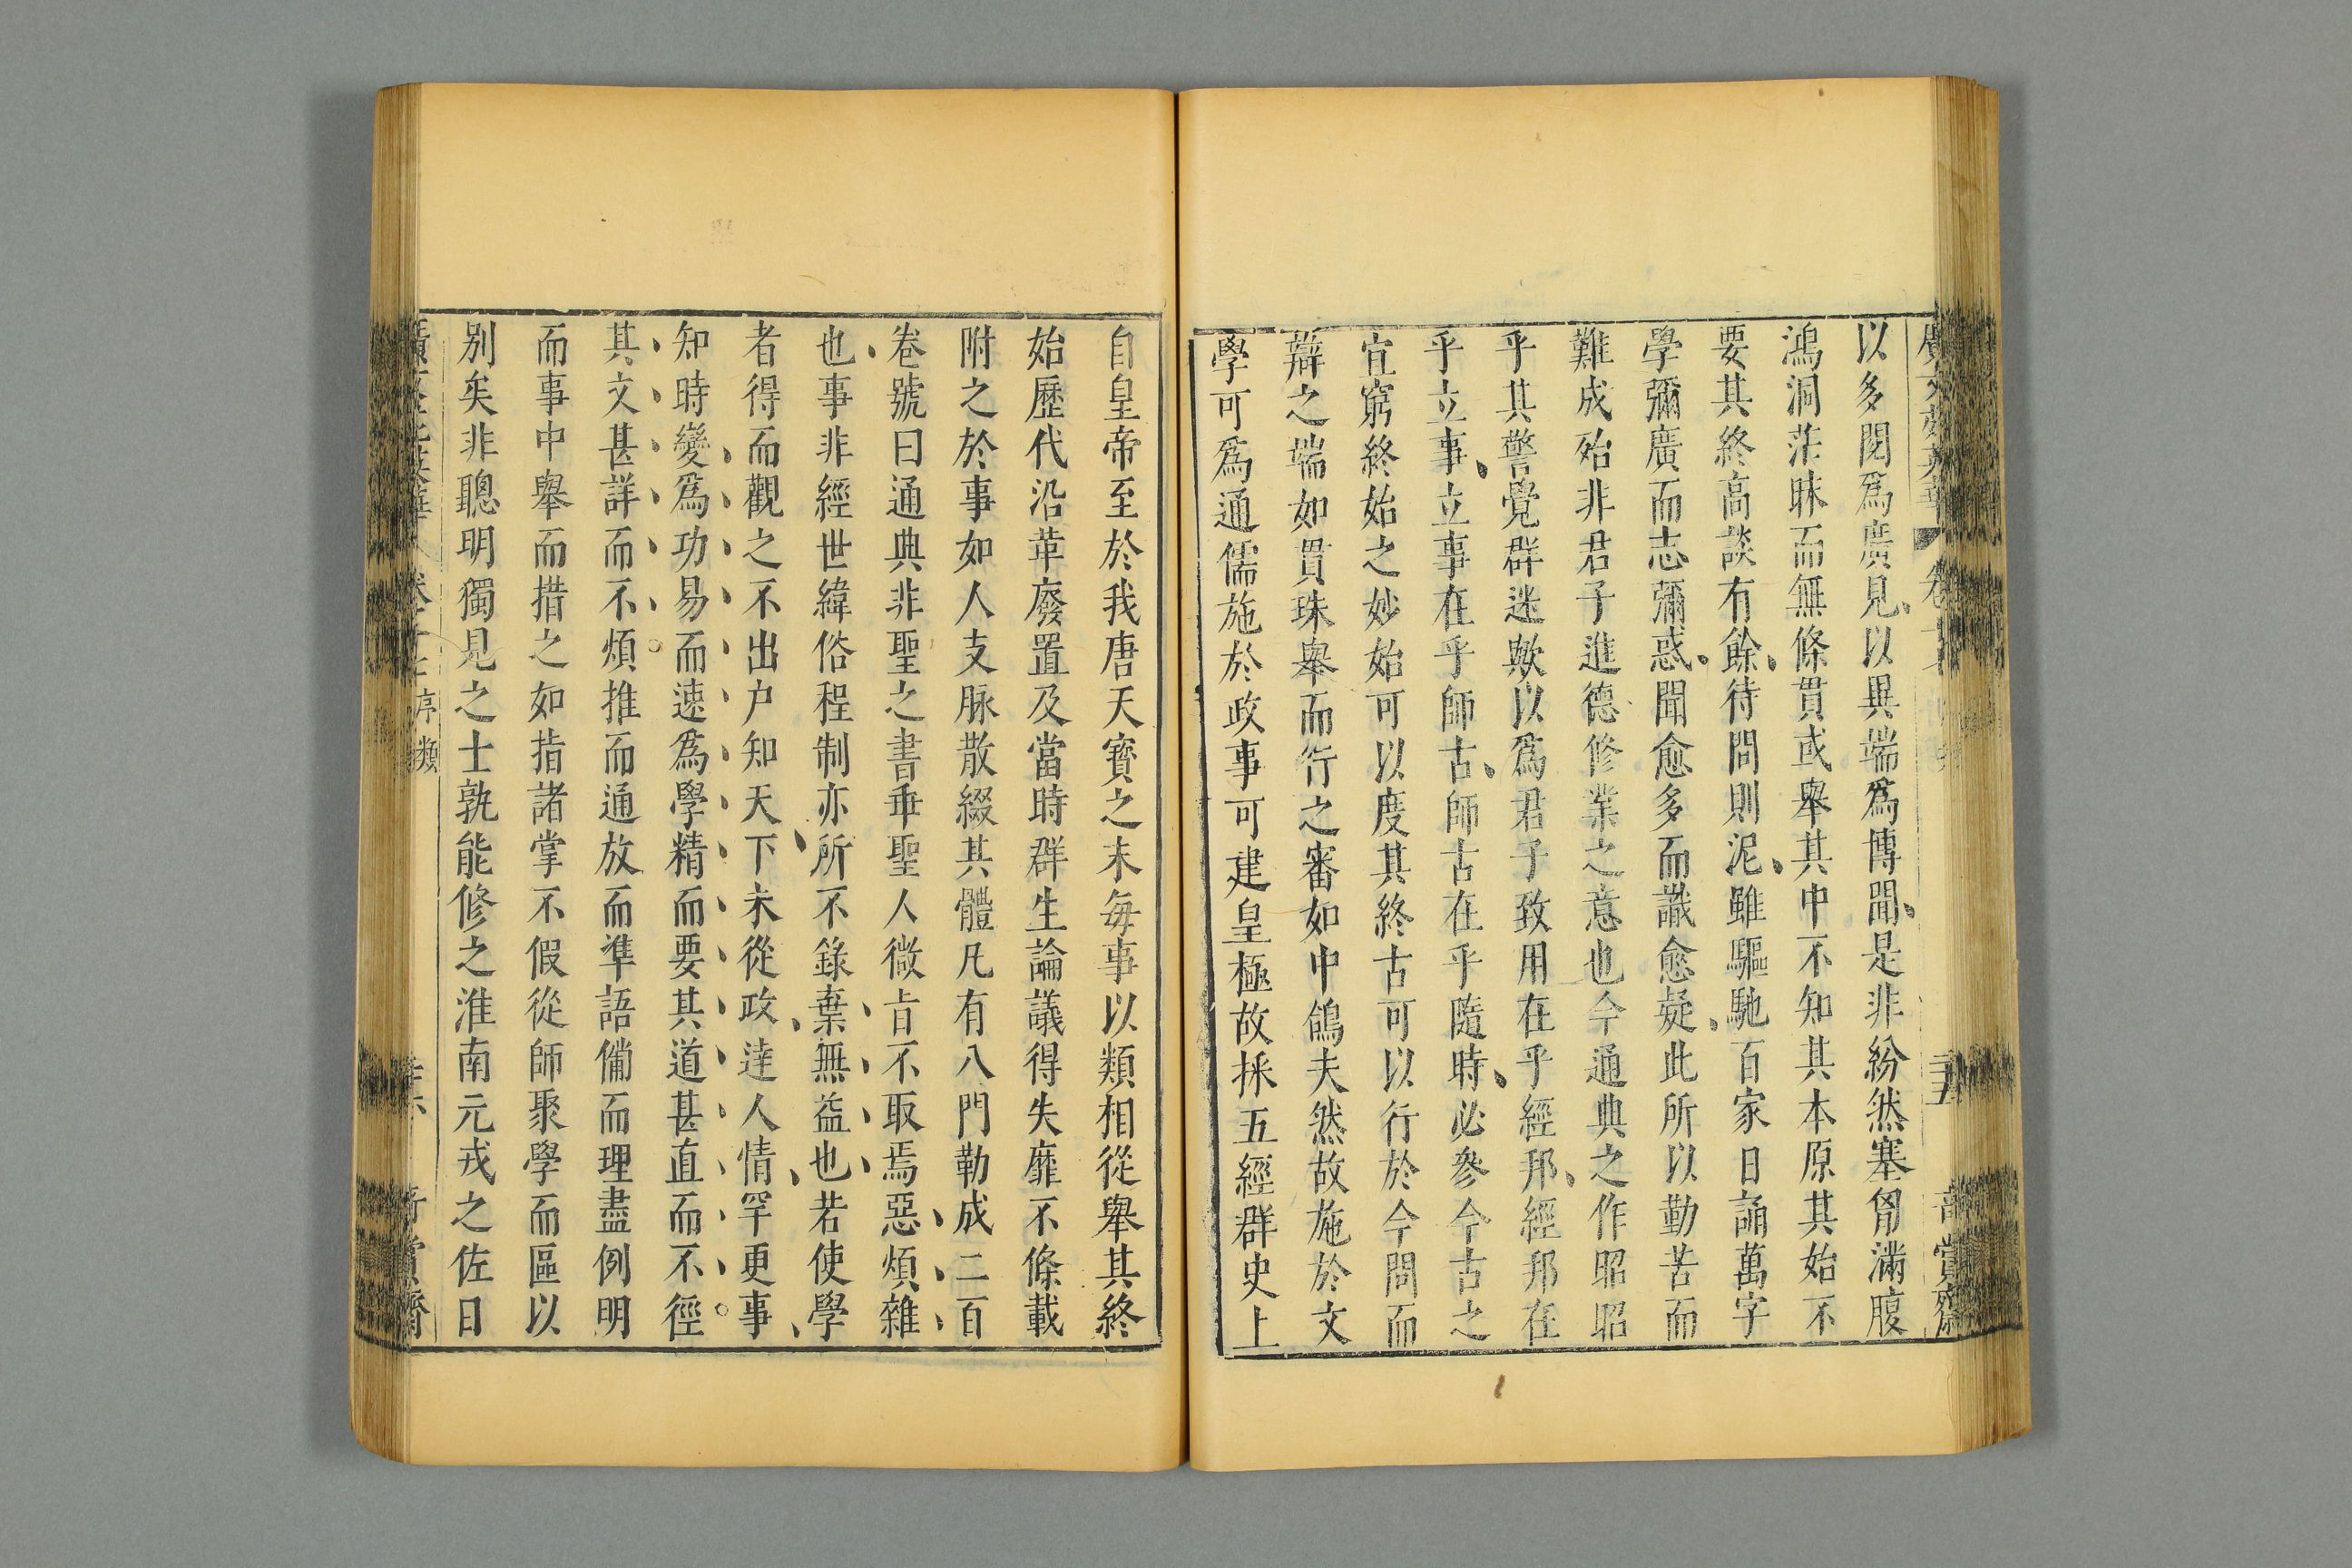 以多閱爲廣見以異端爲博聞是非紛然塞胷滿腹
鴻洞茫昧而無條貫或舉其中不知其本原其始不
要其終高談有餘待問則泥雖驅馳百家日誦萬字
學彌廣而志彌惑聞愈多而識愈疑此所以勤苦而
難成殆非君子進德修業之意也今通典之作昭昭
乎其警覺群迷歟以爲君子致用在乎經邦經邦在
乎立事立事在乎師古師古在乎隨時必參今古之
宜窮終始之妙始可以度其終古可以行於今問而
辯之端如貫珠舉而行之審如中鵠夫然故施於文
學可爲通儒施於政事可建皇極故採五經群史上
自皇帝至於我唐天寳之末每事以類相從舉其終
始歷代沿革廢置及當時群生論議得失靡不條載
附之於事如人支脉散綴其體凡有八門勒成二百
卷號曰通典非聖之書乖聖人微旨不取焉惡煩雜
也事非經世緯俗程制亦所不錄棄無益也若使學
者得而觀之不出户知天下未從政達人情罕更事
知時變爲功易而速爲學精而要其道甚直而不徑
其文甚詳而不煩推而通放而準語備而理盡例明
而事中舉而措之如指諸掌不假從師聚學而區以
别矣非聰明獨見之士孰能修之淮南元戎之佐日
序類
賞齋